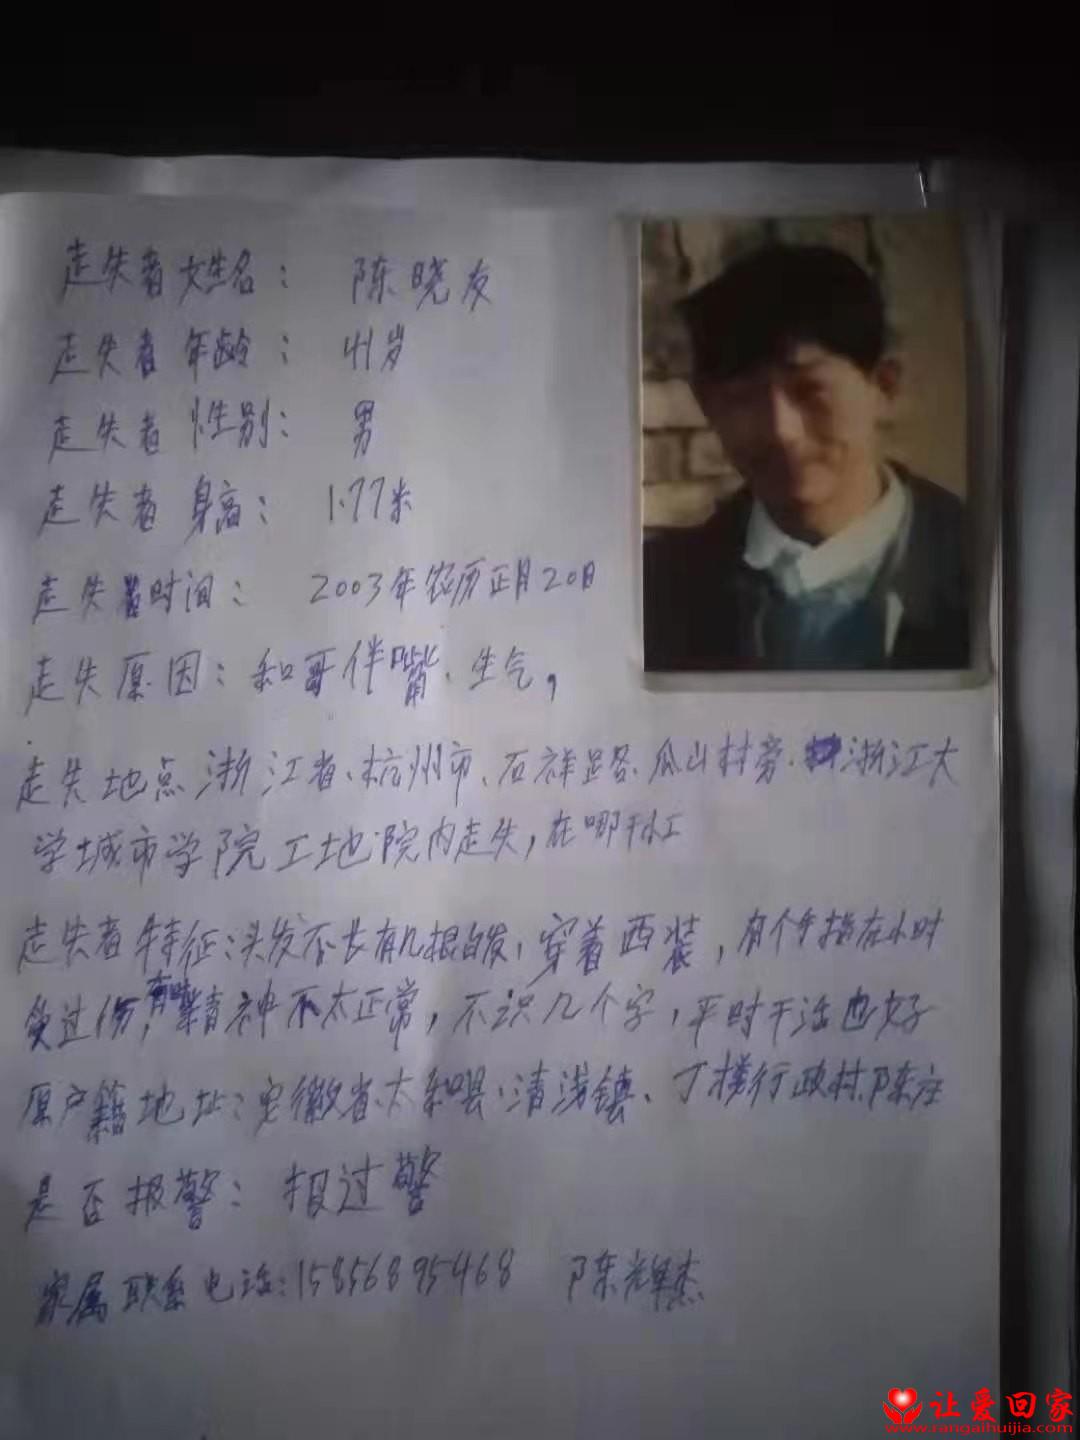 走失者姓名： 陈晓友
走失者年龄： 41岁
走失者性别： 男
走失者身高： 1.77米
走失者时间： 2003年农历正月20日
走失原因：和哥伴嘴、生气，
走失地点浙江省、杭州市、石祥路、瓜山村旁、浙江大
学城市学院工地院内走失，在哪干木工
走失者特征：头发不长有几根白发，穿着西装，有个手指在小时
受过伤，有时精神不太正常，不识几个字，平时干活也好
原户籍地址：安徽省、太和县、清浅镇、丁楼行政村、陈庄
是否报警：报过警
家属联系电话：15856895468 陈辉杰
让爱回家
www.rangaihuijia.com